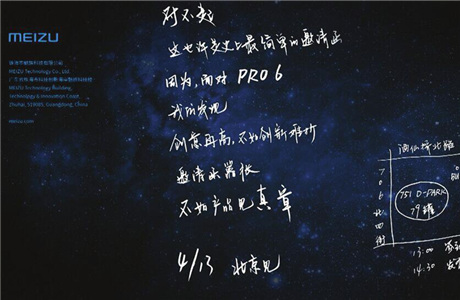 MEIZU
珠海市魅族科技有限公司
MEIZU Technology Co., Ltd
MEIZU Technology Building,
Technology & Innovation Coast,
Zhuhai, 519085, Guangdong, China
对不起
这也许是史上最简单的邀请函
因为,面对 PRO 6
我们发现
创意再高,不如创新爆炸
邀请函嚣张
不如产品见真章
4/13 北京见
酒仙桥北路
706
北四街
751 D-PARK
79罐
13:00
14:30